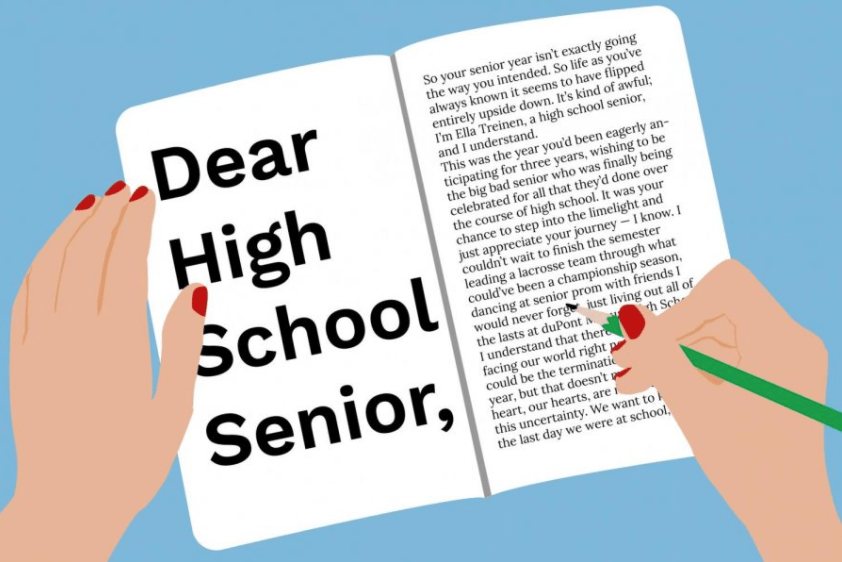 Dear
High
School
Senior,
So your senior year isn't exactly going
the way you intended. So life as you've
always known it seems to have flipped
entirely upside down. It's kind of awful;
I'm Ella Treinen, a high school senior,
and I understand.
This was the year you'd been eagerly an-
ticipating for three years, wishing to be
the big bad senior who was finally being
celebrated for all that they'd done over
the course of high school. It was your
chance to step into the limelight and
just appreciate your journey — I know. I
couldn't wait to finish the semester
leading a lacrosse team through what
could've been a championship season,
dancing at senior prom with friends I
would never just living out all of
the lasts at duPont
I understand that
facing our world right
could be the
year, but that doesn't
heart, our hearts, are
this uncertainty. We want to
the last day we were at school,